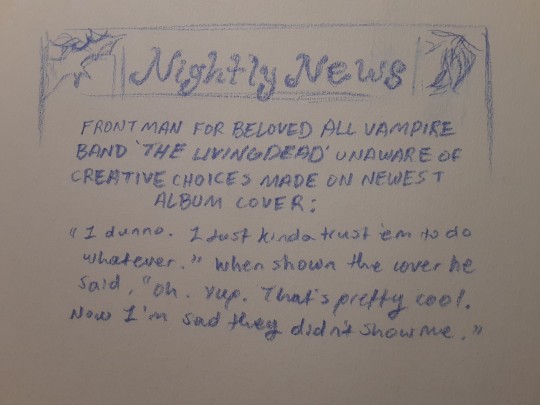 Nightly News
FRONTMAN FOR BELOVED ALL VAMPIRE
BAND 'THE LIVINGDEAD' UNAWARE OF
CREATIVE CHOICES MADE ON NEWEST
ALBUM COVER:
"I dunno. I Just kinda trust 'em to do
whatever." when shown the cover he
said, "oh. Yup. That's pretty cool.
Now I'm sad they didn't show me."